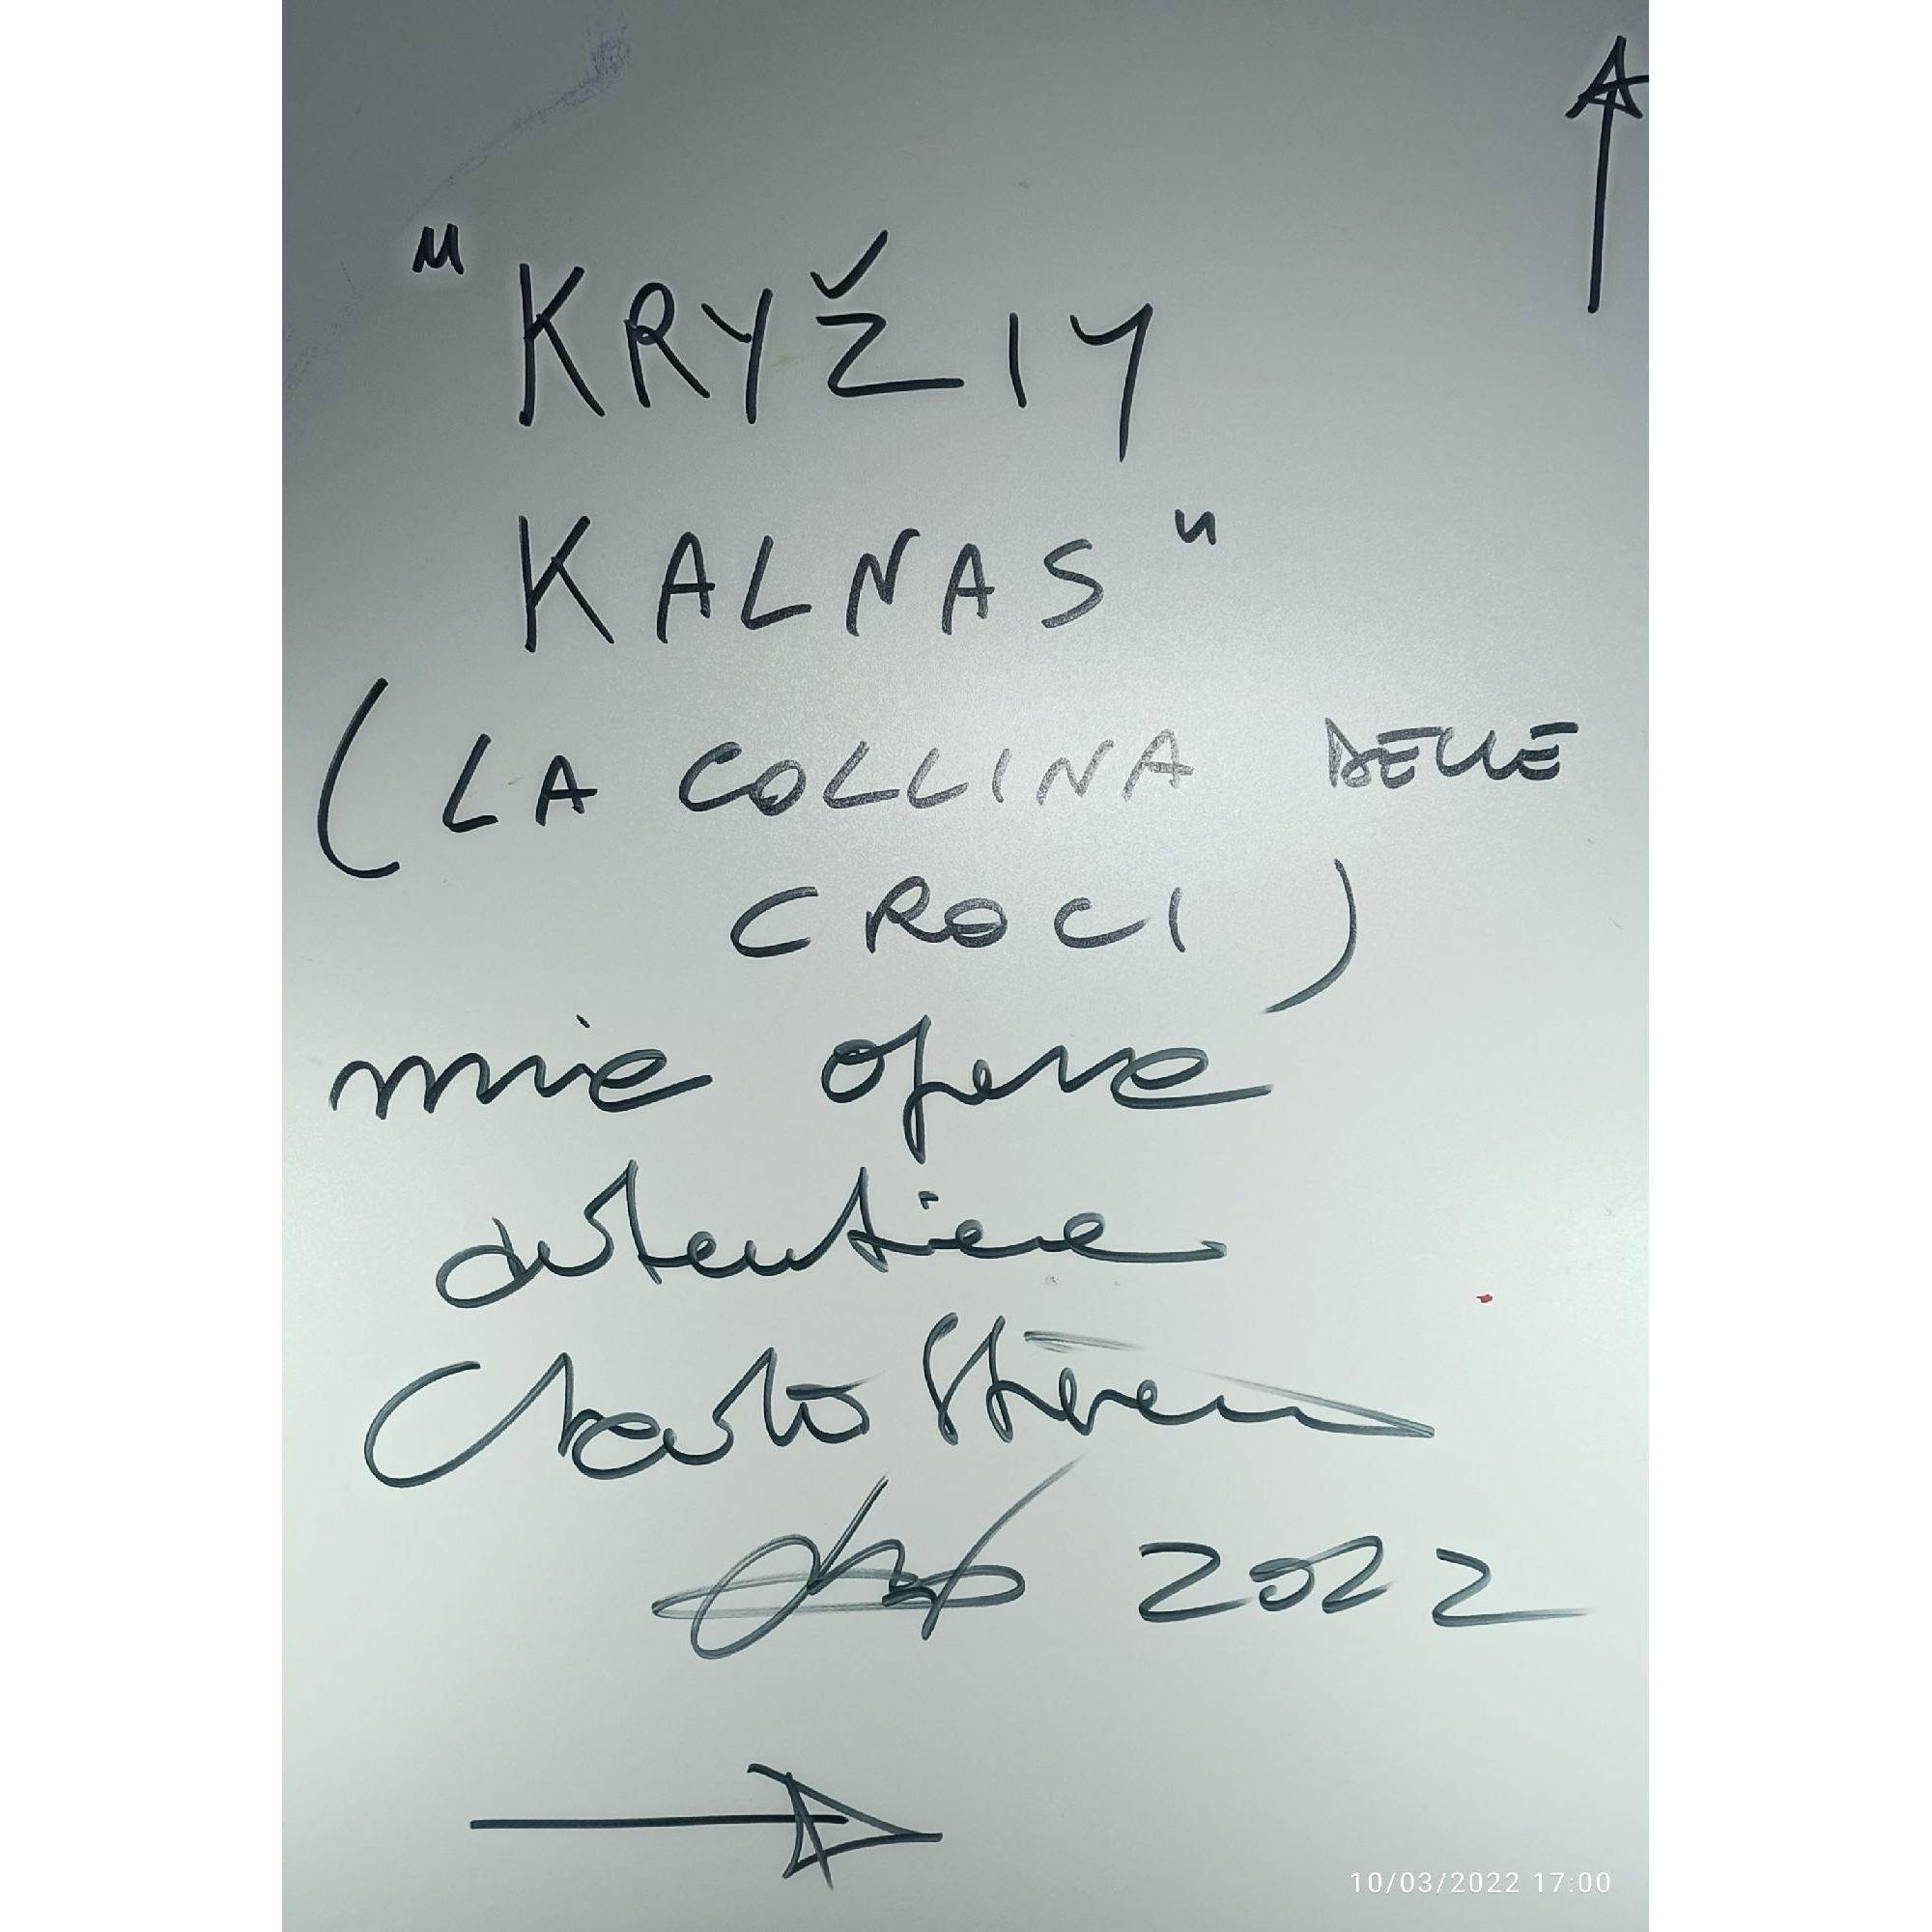 "KRYŽIY
KALNAS"
(LA COLLINA DELLE
CROCI)
mie opere
autentiche
2022
10/03/2022 17:00